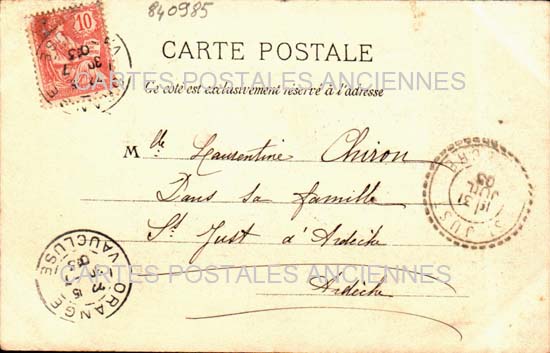 840985
10
CARTE POSTALE
CARTES POSTALES ANCIENNES
Ce côté est exclusivement réservé à l'adresse
Mlle Laurentine Chiron
Dans sa famille
St Just d'Ardèche
Ardèche
CARTES POSTALES ANCIENNES
ORANGE
VAUCLUSE
ST JUST
31
JUIL
03